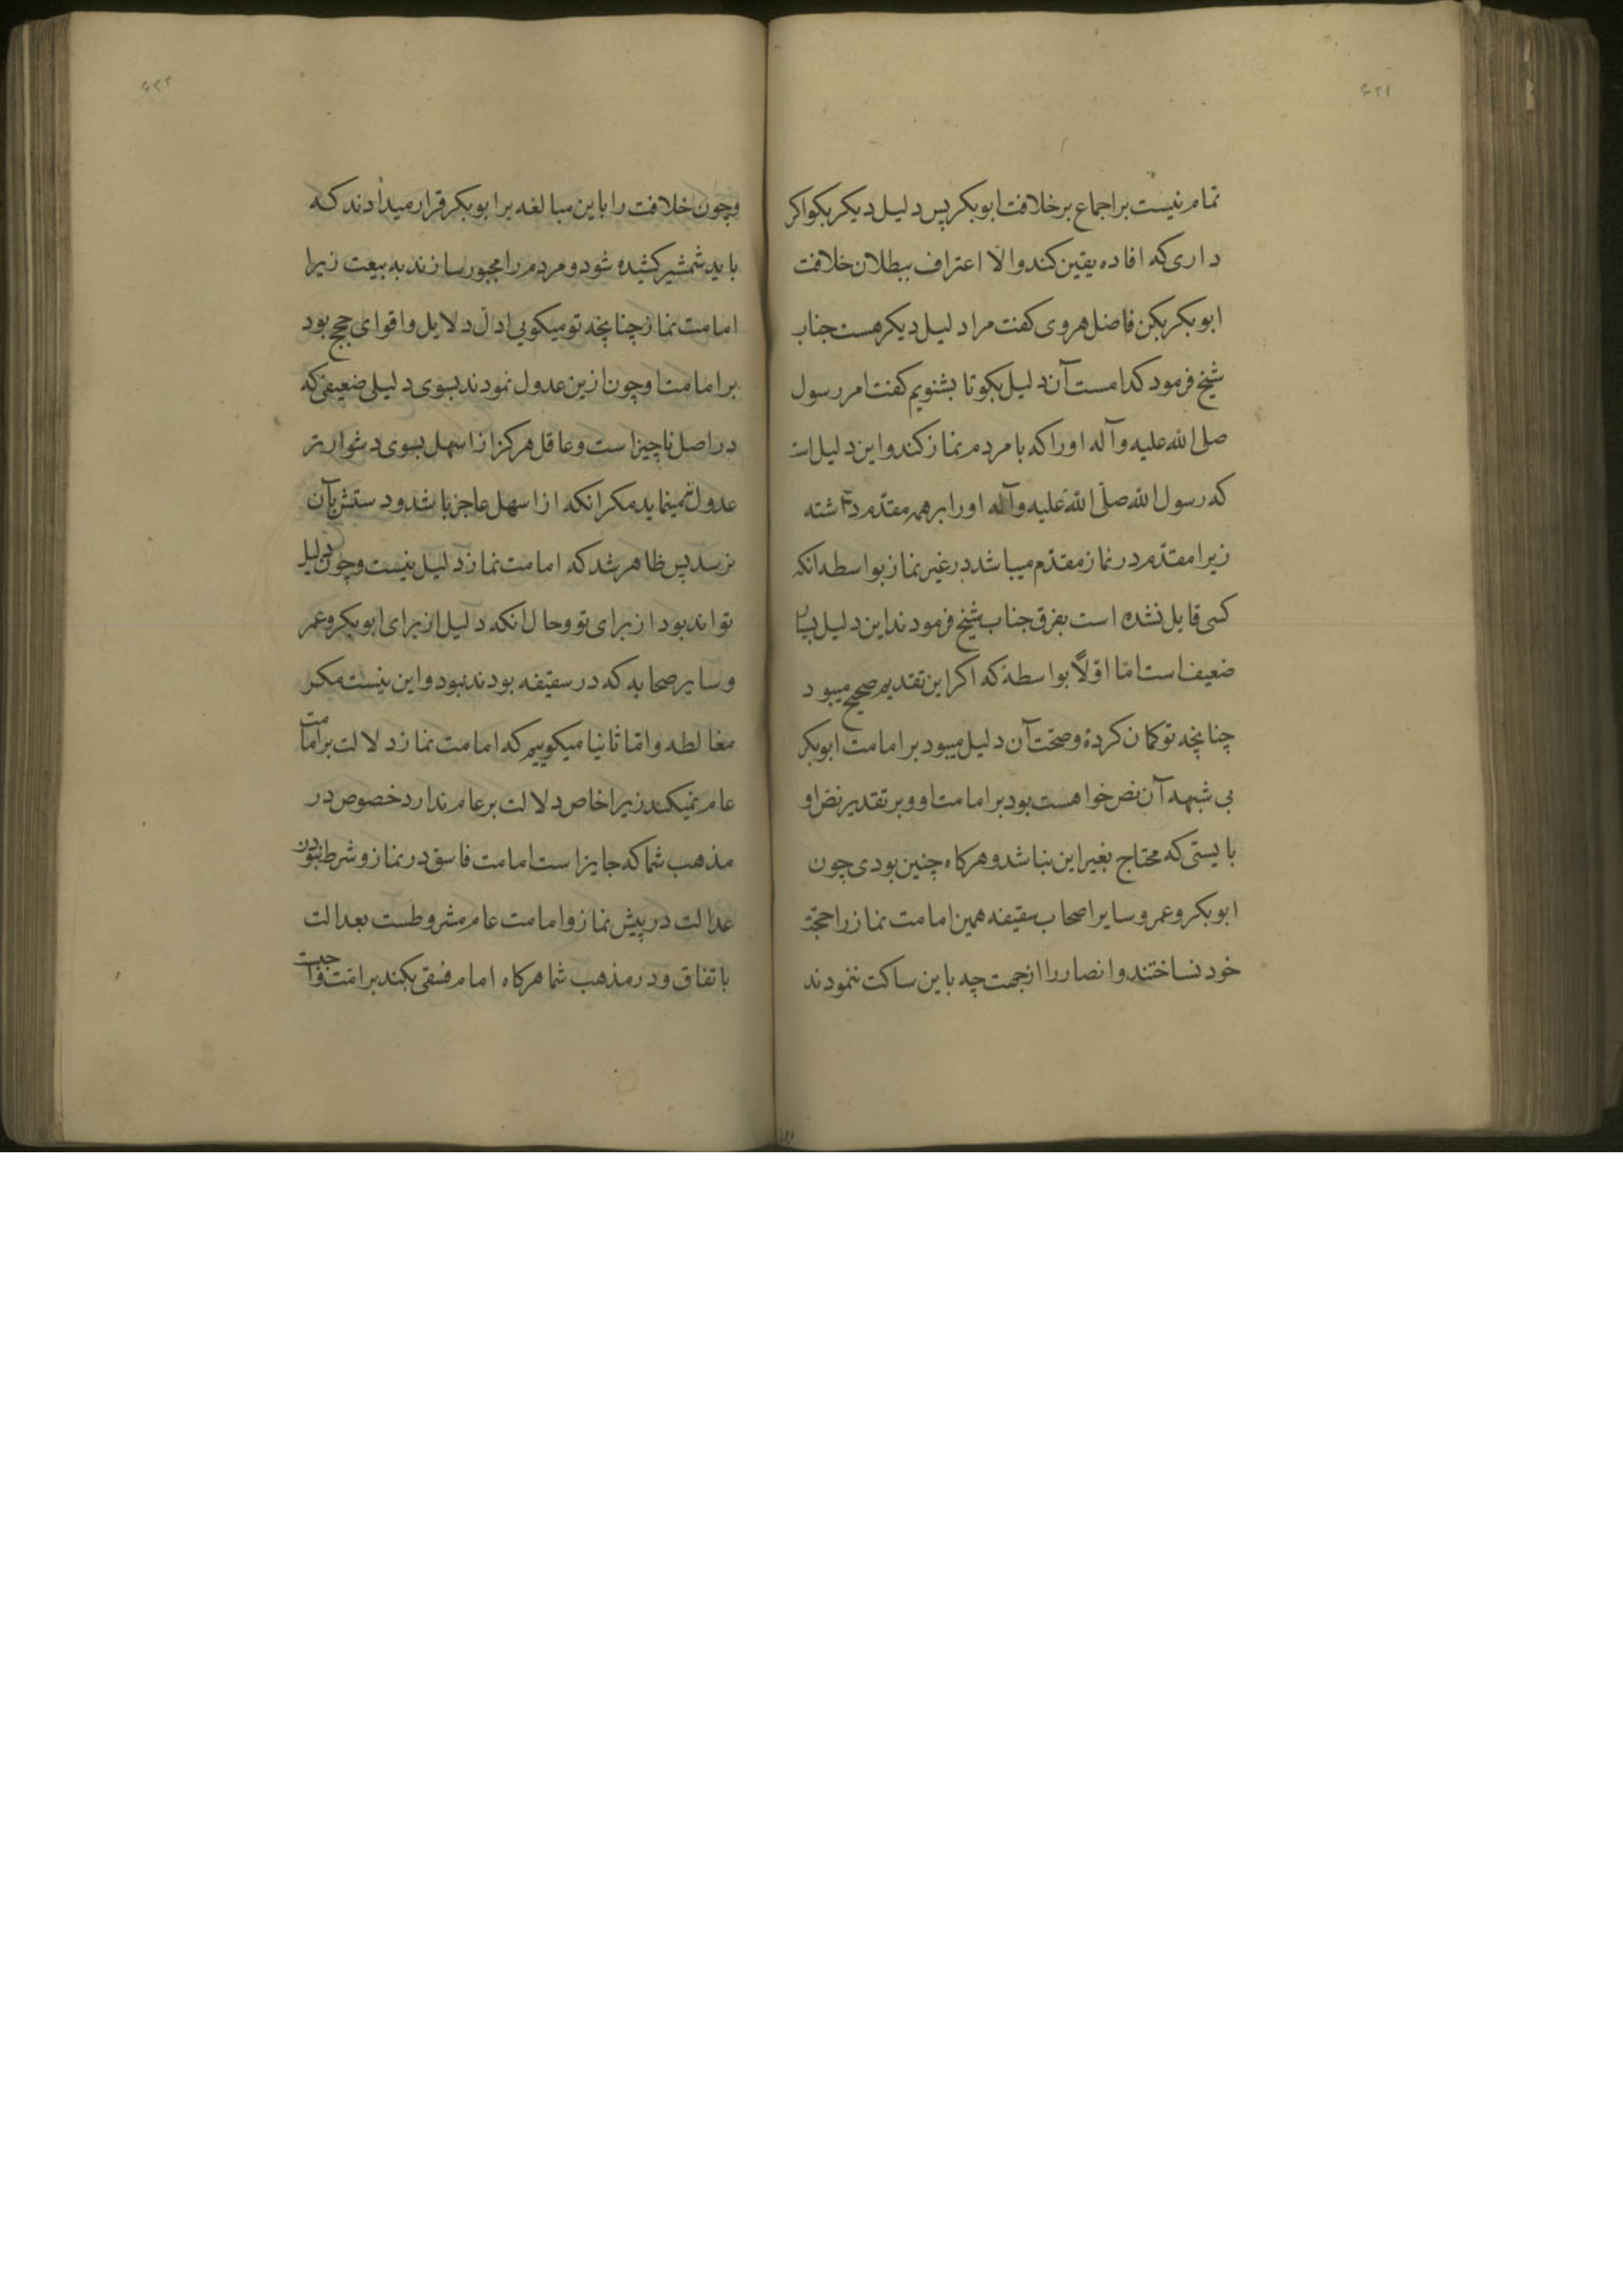 ۶۲۱
تمام نیست بر اجماع بر خلافت ابوبکر پس دلیل دیکر بکو اکر
داری که افاده یقین کند و الا اعتراف ببطلان خلافت
ابوبکر بکن فاضل هروی کفت مرا دلیل دیکر هست جناب
شیخ فرمود کدامست آن دلیل بکو تا بشنویم کفت امر رسول
صلی الله علیه و آله او را که با مردم نماز کند و این دلیل است
که رسول الله صلّی الله علیه و آله او را بر همه مقدّم داشته
زیرا مقدّم در نماز مقدّم میباشد در غیر نماز بواسطه انکه
کسی قایل نشده است بفرق جناب شیخ فرمودند این دلیل بسیار
ضعیف است امّا اوّلاً بواسطهٔ که اکر این تقدیم صحیح میبود
چنانچه تو کمان کردهٔ و صحّت آن دلیل میبود بر امامت ابوبکر
بی شبهه آن نص خواهست بود بر امامت او و بر تقدیر نصّ او
بایستی که محتاج بغیر این نباشد و هرکاه چنین بودی چون
ابوبکر و عمر و سایر اصحاب سقیفه همین امامت نماز را حجّة
خود نساختند و انصار را از جهت چه باین ساکت ننمودند
۶۲۲
و چون خلافت را باین مبالغه بر ابوبکر قرار میدادند که
باید شمشیر کشیده شود و مردم را مجبور سازند به بیعت زیرا
امامت نماز چنانچه تو میکویی ادلّ دلایل و اقوای حجج بود
بر امامت او چون ازین عدول نمودند بسوی دلیلی ضعیفی که
در اصل ناچیز است و عاقل هرکز از اسهل بسوی دشوارتر
عدول نمینماید مکر انکه از اسهل عاجز باشد و دستش بآن
نرسد پس ظاهر شد که امامت نماز دلیل نیست و چون دلیل
تواند بود از برای تو و حال انکه دلیل از برای ابوبکر و عمر
و سایر صحابه که در سقیفه بودند نبود و این نیست مکر
مغالطه و امّا ثانیا میکوییم که امامت نماز دلالت بر امامت
عام نمیکند زیرا خاص دلالت بر عام ندارد خصوص در
مذهب شما که جایز است امامت فاسق در نماز و شرط نبودن
عدالت در پیش نماز و امامت عام مشروطست بعدالت
باتفاق و در مذهب شما هرکاه امام فسقی بکند بر امّت واجبست